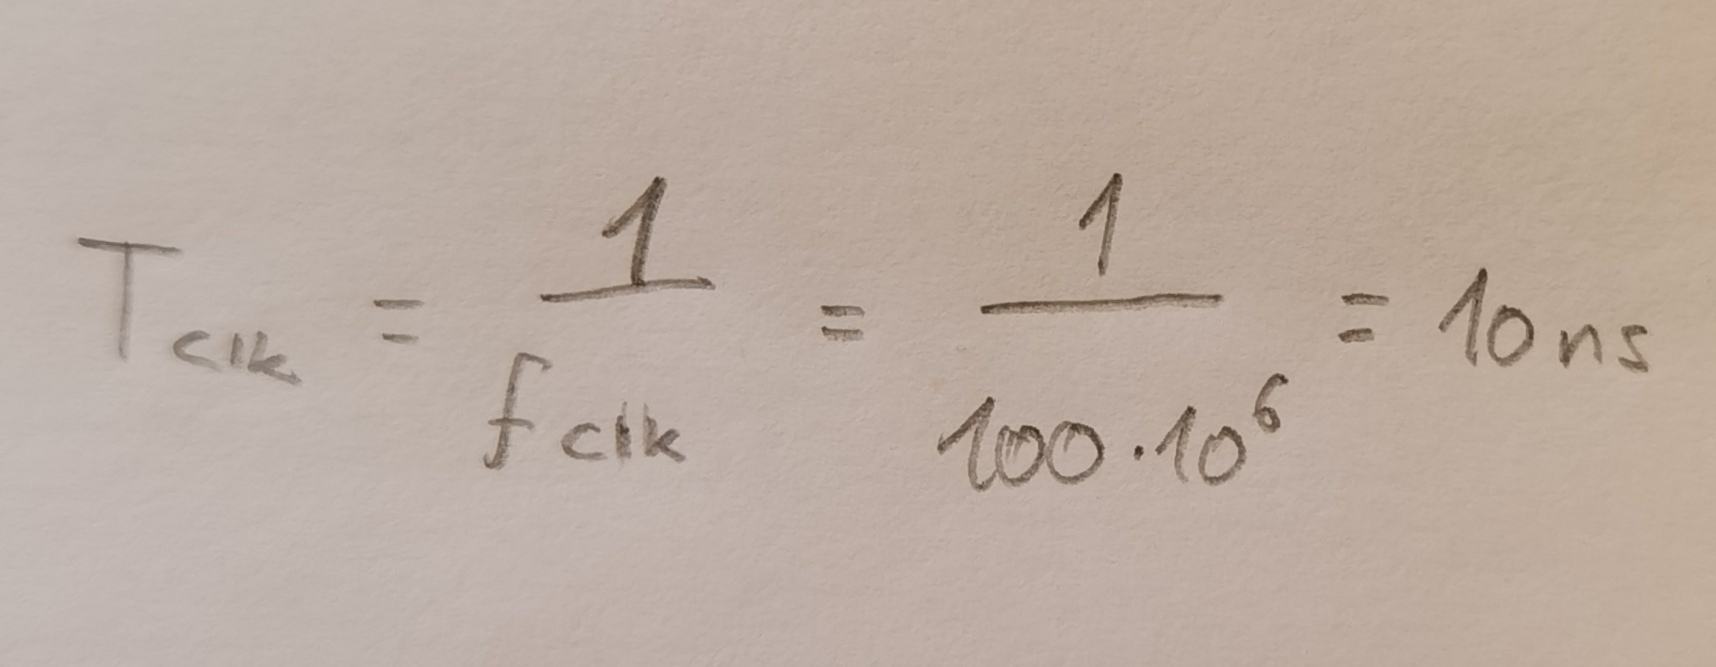 T_clk = 1/f_clk = 1/(100·10⁶) = 10ns